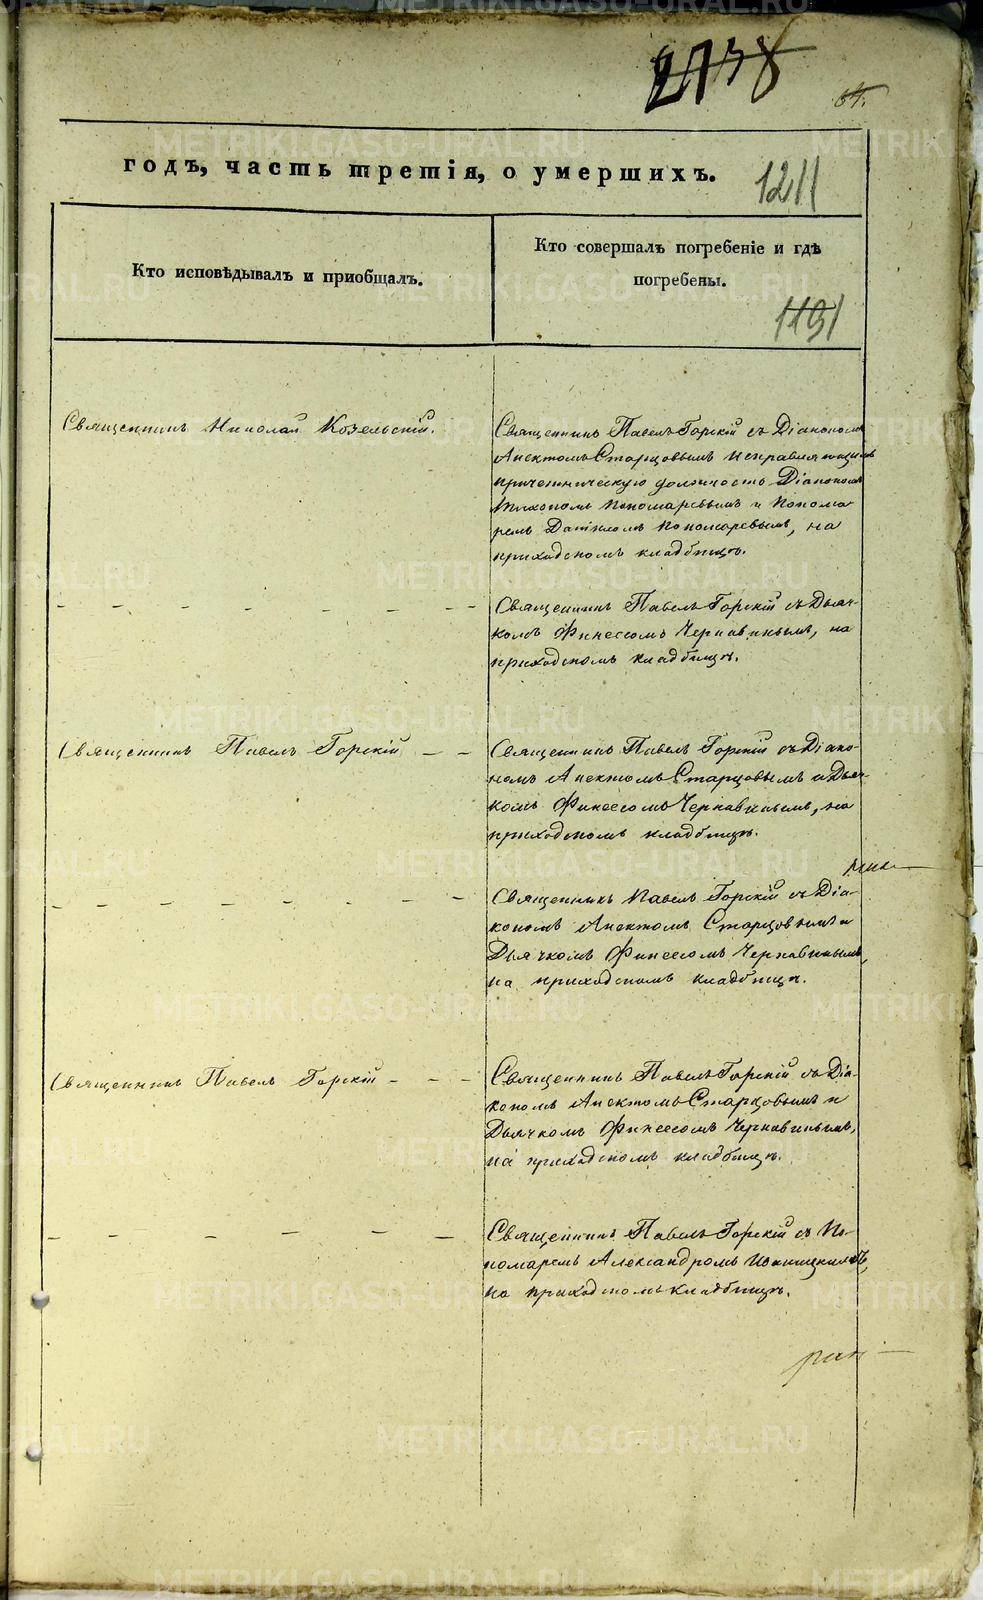 2138
64.
годъ, часть третія, о умершихъ.
1211
Кто исповѣдывалъ и приобщалъ.
Кто совершалъ погребеніе и гдѣ
погребены.
1191
Священникъ Николай Козельскій.
Священникъ Павелъ Горскій съ Діакономъ
Анектомъ Старцовымъ исправляющимъ
причетническую должность Діакономъ
Тихономъ Пономаревымъ и Понома-
ремъ Даніиломъ Пономаревымъ, на
приходскомъ кладбищѣ.
Священникъ Павелъ Горскій съ Дьяч-
комъ Финеесомъ Чернавинымъ, на
приходскомъ кладбищѣ.
Священникъ Павелъ Горскій
Священникъ Павелъ Горскій съ Діако-
номъ Анектомъ Старцовымъ и Дьяч-
комъ Финеесомъ Чернавинымъ, на
приходскомъ кладбищѣ.
Священникъ Павелъ Горскій съ Діа-
кономъ Анектомъ Старцовымъ и
Дьячкомъ Финеесомъ Чернавинымъ,
на приходскомъ кладбищѣ.
Священникъ Павелъ Горскій
Священникъ Павелъ Горскій съ Діа-
кономъ Анектомъ Старцовымъ и
Дьячкомъ Финеесомъ Чернавинымъ,
на приходскомъ кладбищѣ.
Священникъ Павелъ Горскій съ По-
номаремъ Александромъ
на приходскомъ кладбищѣ.
METRIKI.GASO-URAL.RU